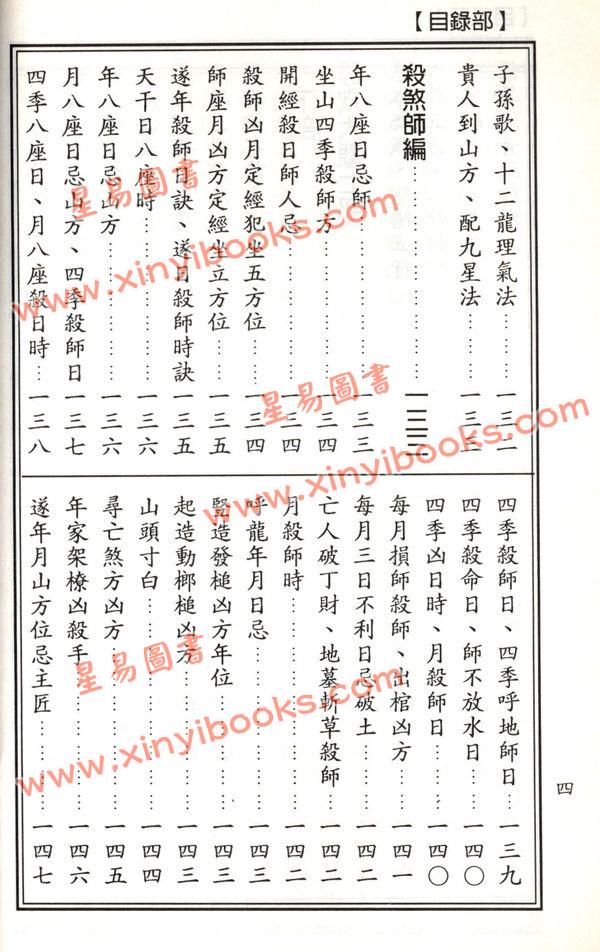 【目錄部】
子孫歌、十二龍理氣法…………一三二
貴人到山方、配九星法…………一三二
殺煞師編…………一三三
年八座日忌師…………一三三
坐山四季殺師方…………一三四
開經殺日師人忌…………一三四
殺師凶月定經犯坐五方位…………一三四
師座月凶方定經坐立方位…………一三五
遂年殺師日訣、遂日殺師時訣 一三五
天干日八座時…………一三六
年八座日忌山方…………一三六
月八座日忌山方、四季殺師日 一三七
四季八座日、月八座殺日時…一三八
四季殺師日、四季呼地師日…一三九
四季殺命日、師不放水日…………一四〇
四季凶日時、月殺師日…………一四〇
每月損師殺師、出棺凶方…………一四一
每月三日不利日忌破土…………一四二
亡人破丁財、地墓斬草殺師…一四二
月殺師時…………一四二
呼龍年月日忌…………一四三
豎造發槌凶方年位…………一四三
起造動榔槌凶方…………一四三
山頭寸白…………一四四
尋亡煞方凶方…………一四五
年家架橑凶殺手…………一四六
遂年月山方位忌主匠…………一四七
四
星易圖書
www.xinyibooks.com
星易圖書
www.xinyibooks.com
星易圖書
www.xinyibooks.com